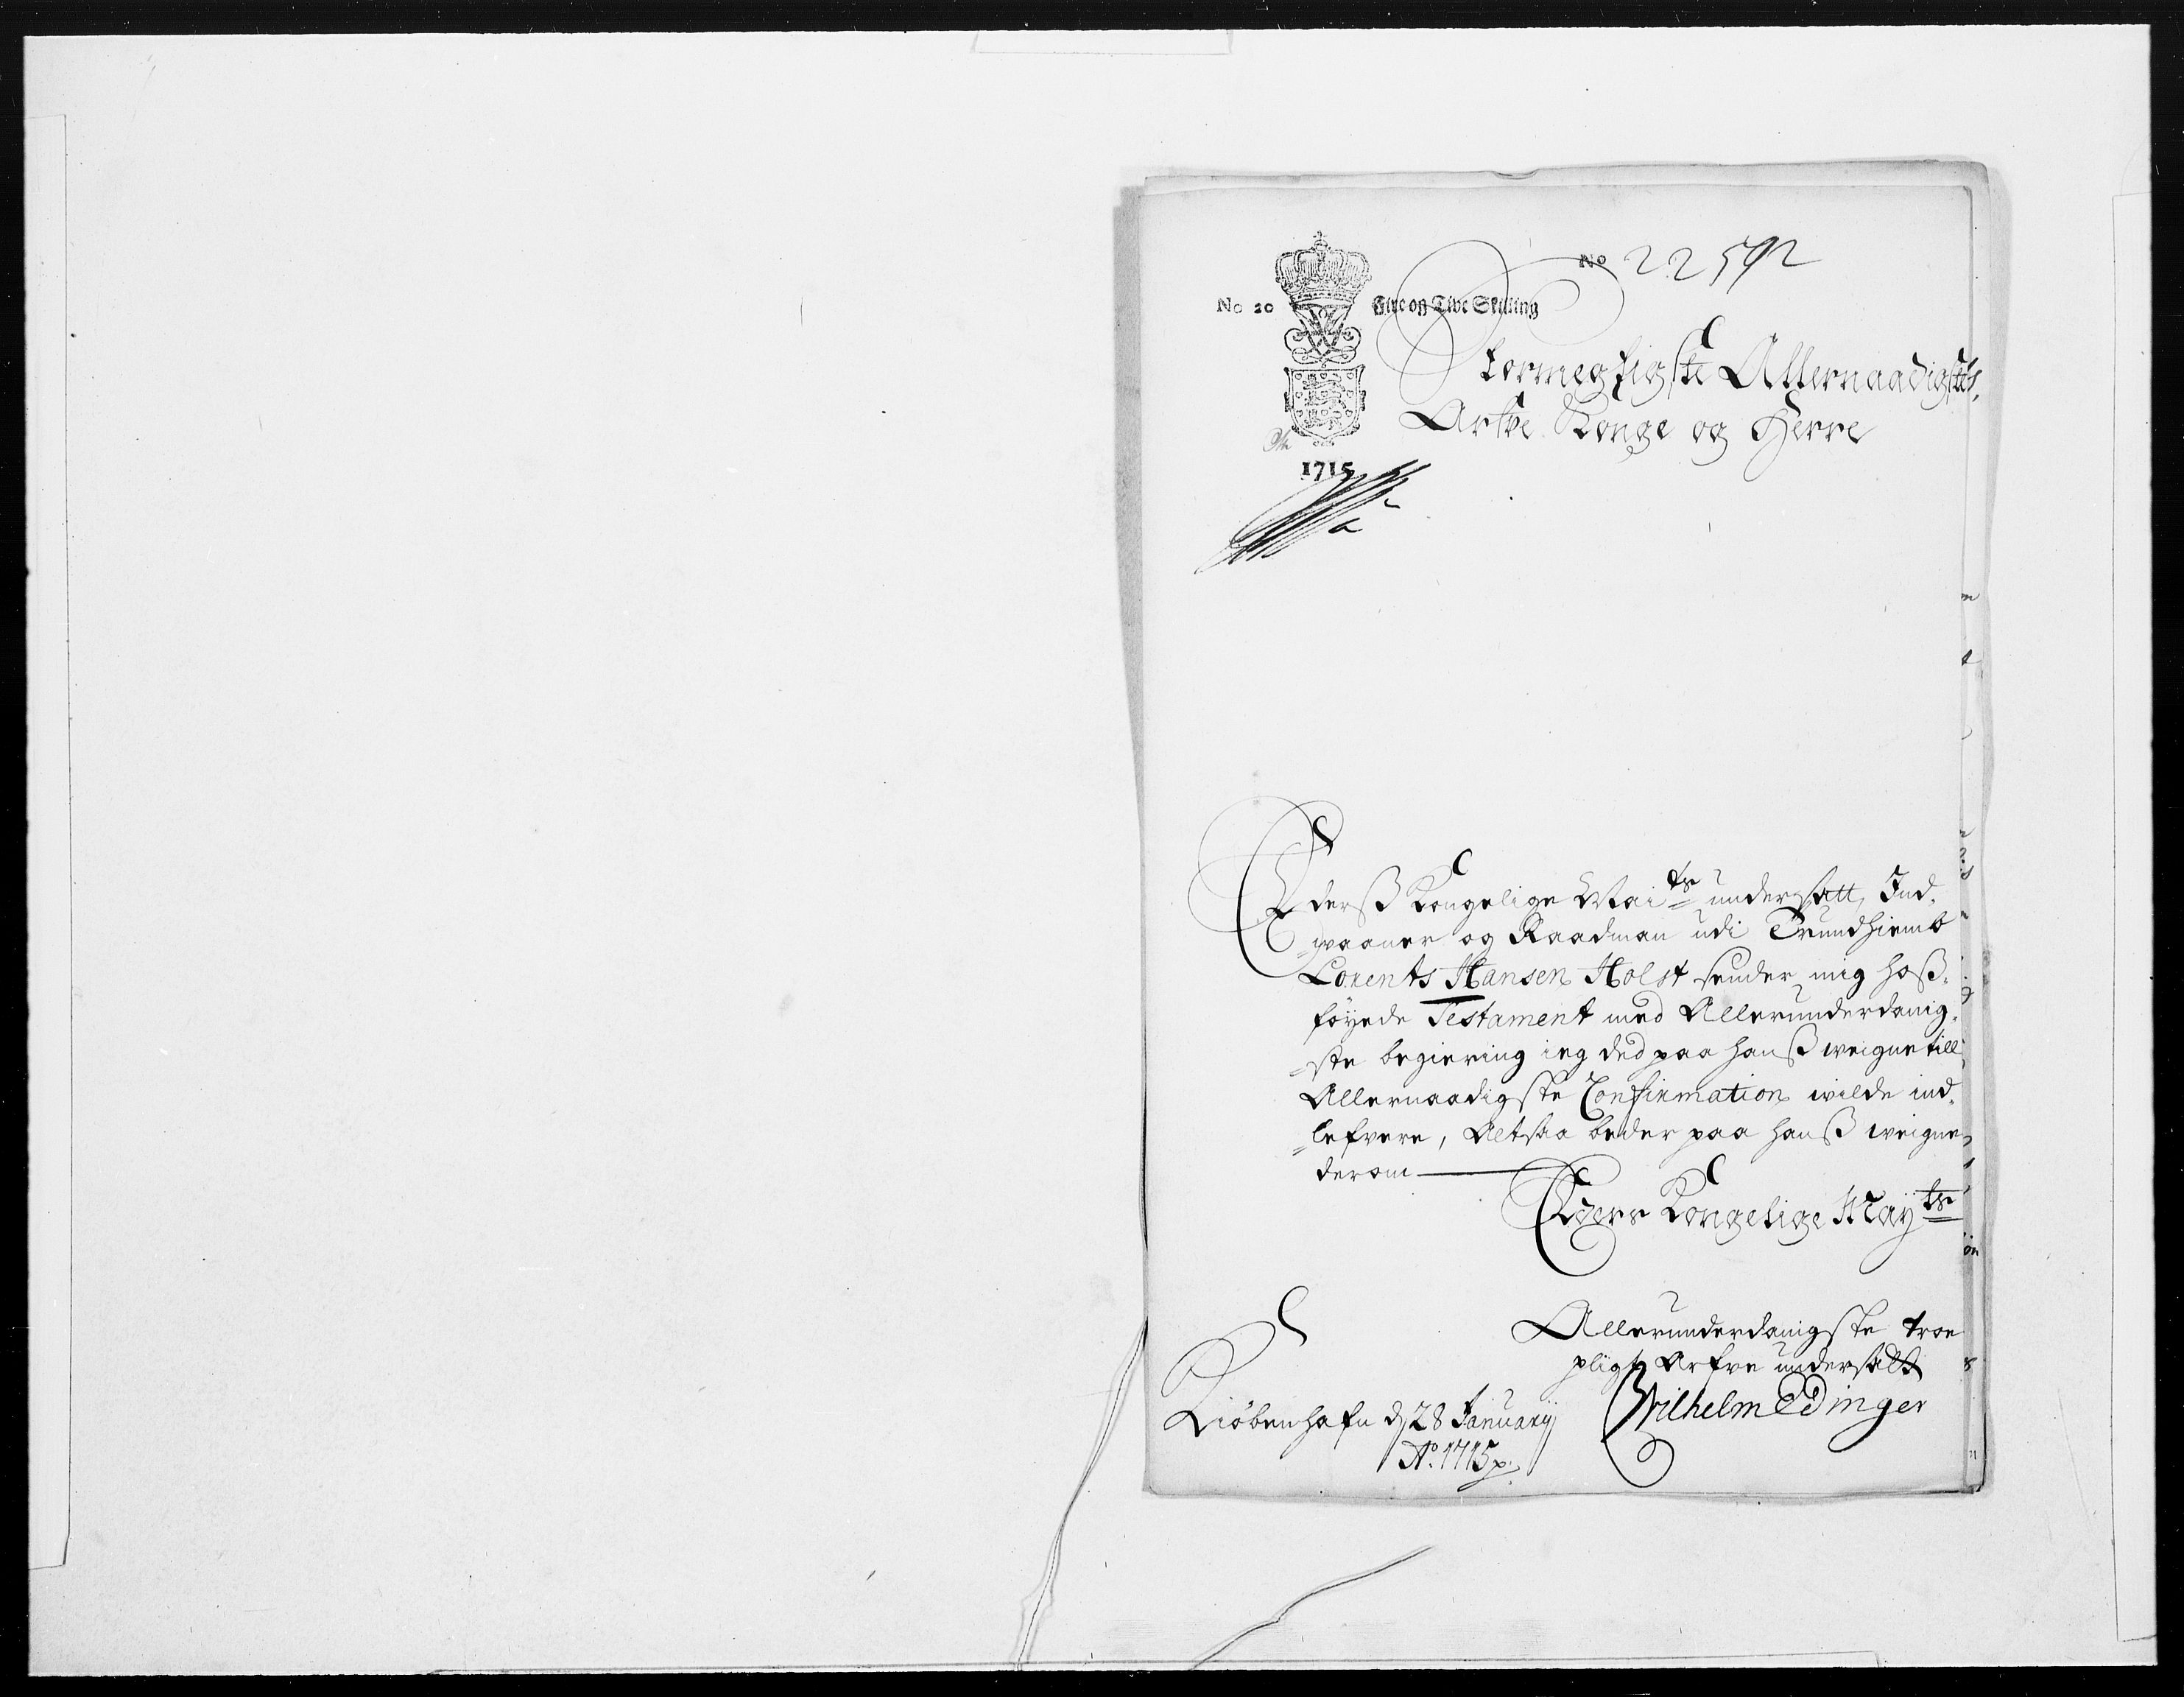 No 22592
No 20
Fire og Tive Skilling
Stormegtigste Allernaadigste,
Arfve Konge og Herre
1715
Ederß Kongelige Mai^ts undersatt, Ind-
=waaner og Raadman udi Trundhiemb
Lorents Hansen Holst sender mig hoß-
føyede Testament med Allerunderdanig-
=ste begiering ieg ded paa hanß weigne till
Allernaadigste Confirmation wilde ind-
=lefvere, Altsaa beder paa hanß weigne
derom
Eders Kongelige May^ts
Allerunderdanigste troe
pligt Arfve undersatt
Wilhelm Edinger
Kiøbenhafn d 28 January
Ao. 1715